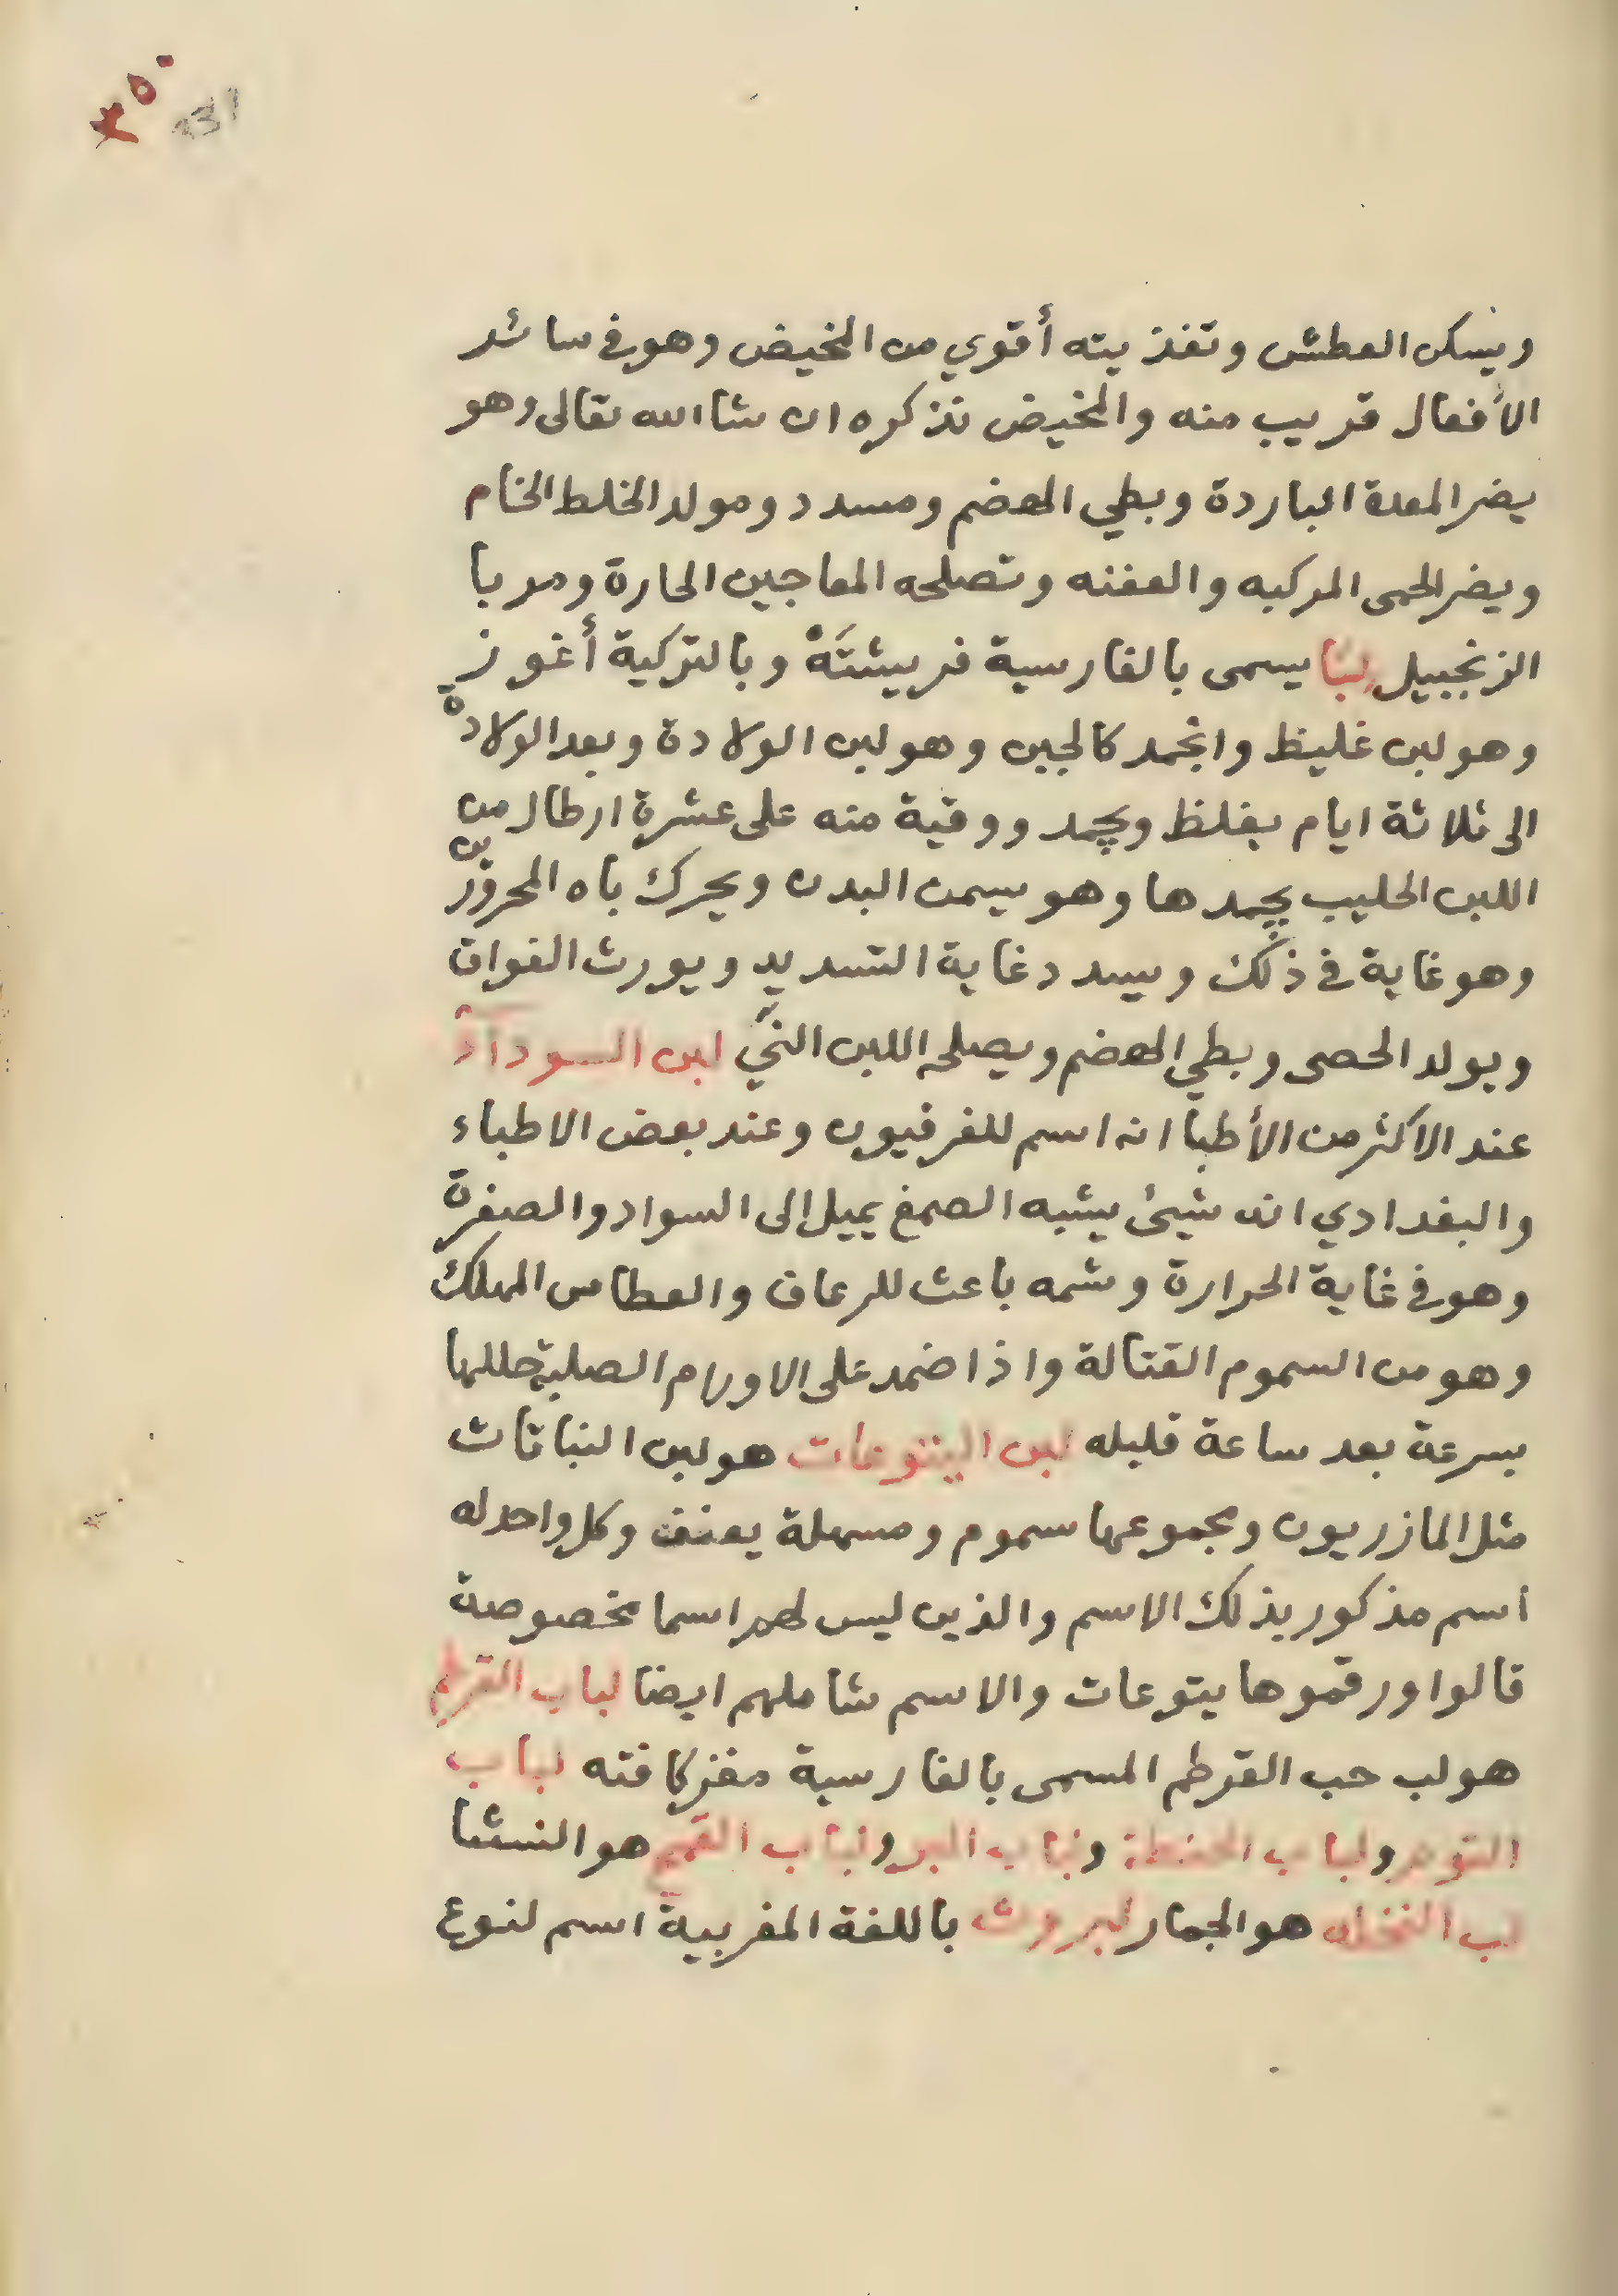 ٣٥٠
331
ويسكن العطش وتغذيته أقوي من المخيض وهو في سائر
الأفعال قريب منه والمخيض نذكره ان شا الله تعالى وهو
يضر المعدة الباردة وبطي الهضم ومسدد ومولد الخلط الخام
ويضر الحمى المركبه والعفنه وتصلحه المعاجين الحارة ومربا
الزنجبيل لبا يسمى بالفارسية فريشتَهْ وبالتركية أغوز
وهو لبن غليظ وانجمد كالجبن وهو لبن الولادة وبعد الولادة
الى ثلاثة ايام يغلظ ويجمد ووقية منه على عشرة ارطال من
اللبن الحليب يجمدها وهو يسمن البدن ويحرك باه المحرورين
وهو غاية في ذلك ويسدد غاية التسديد ويورث الفواق
ويولد الحصى وبطي الهضم ويصلحه اللبن النيّ لبن السودآء
عند الاكثر من الأطبا انه اسم للفرفيون وعند بعض الاطباء
والبغدادي انه شيئ يشبه الصمغ يميل الى السواد والصفرة
وهو في غاية الحرارة وشمه باعث للرعاف والعطاس المهلك
وهو من السموم القتالة واذا ضمد على الاورام الصلبة حللها
بسرعة بعد ساعة قليله لبن اليتوعات هو لبن النباتات
مثل المازريون ومجموعها سموم ومسهلة يعنف وكل واحد له
اسم مذكور بذلك الاسم والذين ليس لهم اسما مخصوصة
قالوا ورقموها يتوعات والاسم شاملهم ايضا لباب القرطم
هو لب حب القرطم المسمى بالفارسية مغز كافته لباب
ولباب الحنطة ولباب البر ولباب القمح هو النشا
لب النخله هو الجمار لبروث باللغة المغربية اسم لنوع